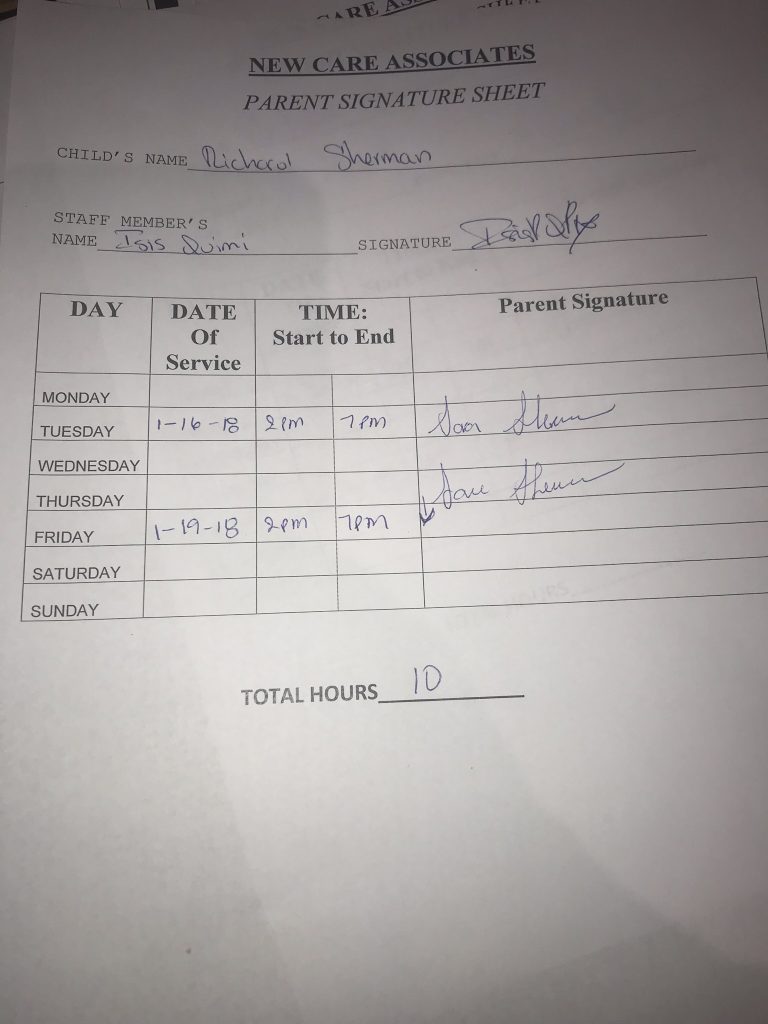 CARE AS
NEW CARE ASSOCIATES
PARENT SIGNATURE SHEET
CHILD'S NAME Richard Sherman
STAFF MEMBER'S
NAME Isis Quimi SIGNATURE
DAY DATE Of Service TIME: Start to End Parent Signature
MONDAY
TUESDAY 1-16-18 2pm 7pm
WEDNESDAY
THURSDAY
FRIDAY 1-19-18 2pm 7pm
SATURDAY
SUNDAY
TOTAL HOURS 10